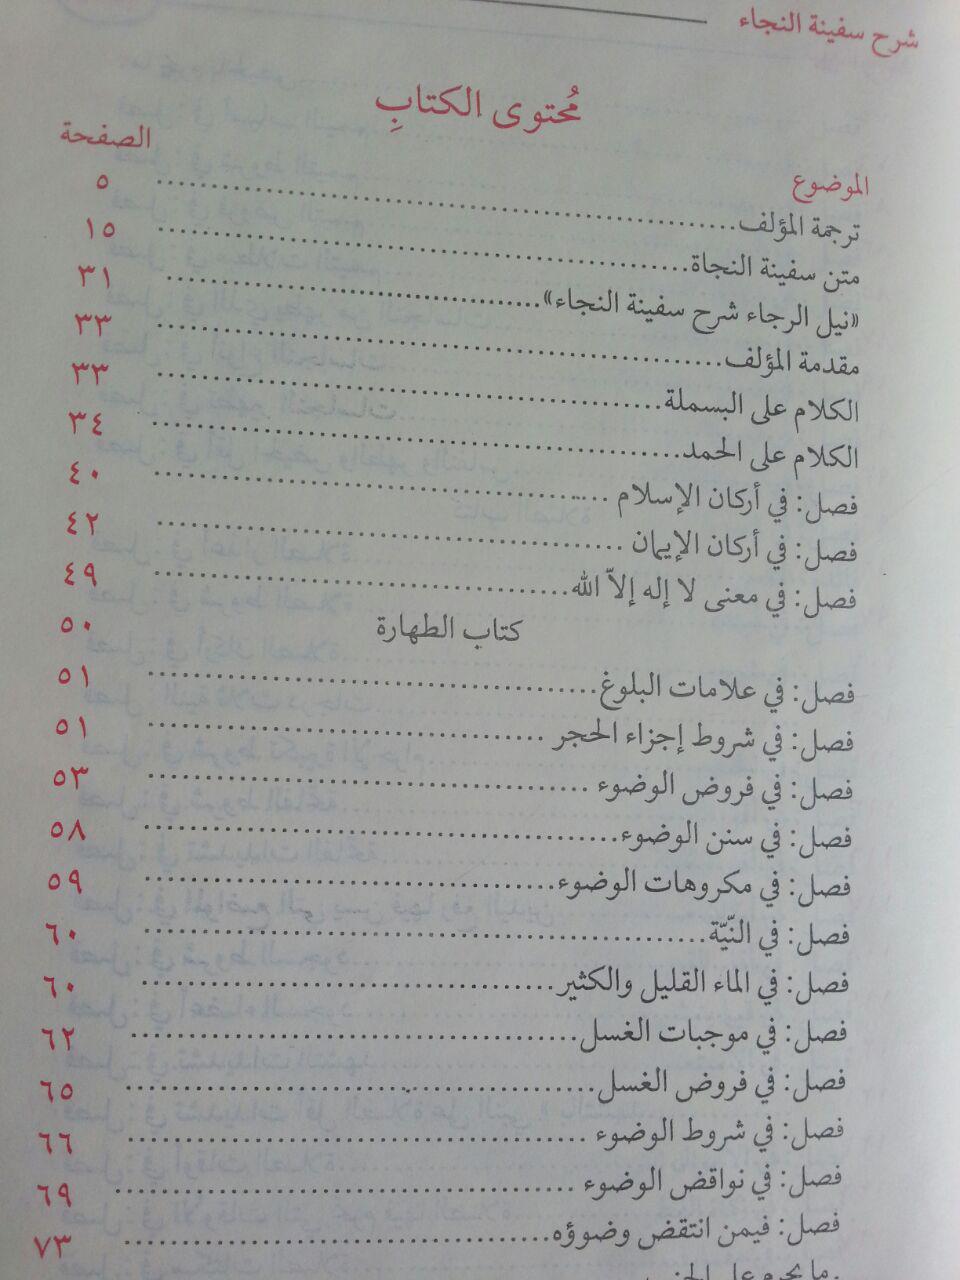 شرح سفينة النجاء
مُحتوى الكتابِ
الموضوع الصفحة
ترجمة المؤلف ٥
متن سفينة النجاة ١٥
«نيل الرجاء شرح سفينة النجاء» ٣١
مقدمة المؤلف ٣٣
الكلام على البسملة ٣٣
الكلام على الحمد ٣٤
فصل: في أركان الإسلام ٤٠
فصل: في أركان الإيمان ٤٢
فصل: في معنى لا إله إلاّ الله ٤٩
كتاب الطهارة ٥٠
فصل: في علامات البلوغ ٥١
فصل: في شروط إجزاء الحجر ٥١
فصل: في فروض الوضوء ٥٣
فصل: في سنن الوضوء ٥٨
فصل: في مكروهات الوضوء ٥٩
فصل: في النّيّة ٦٠
فصل: في الماء القليل والكثير ٦٠
فصل: في موجبات الغسل ٦٢
فصل: في فروض الغسل ٦٥
فصل: في شروط الوضوء ٦٦
فصل: في نواقض الوضوء ٦٩
فصل: فيمن انتقض وضوؤه ٧٣